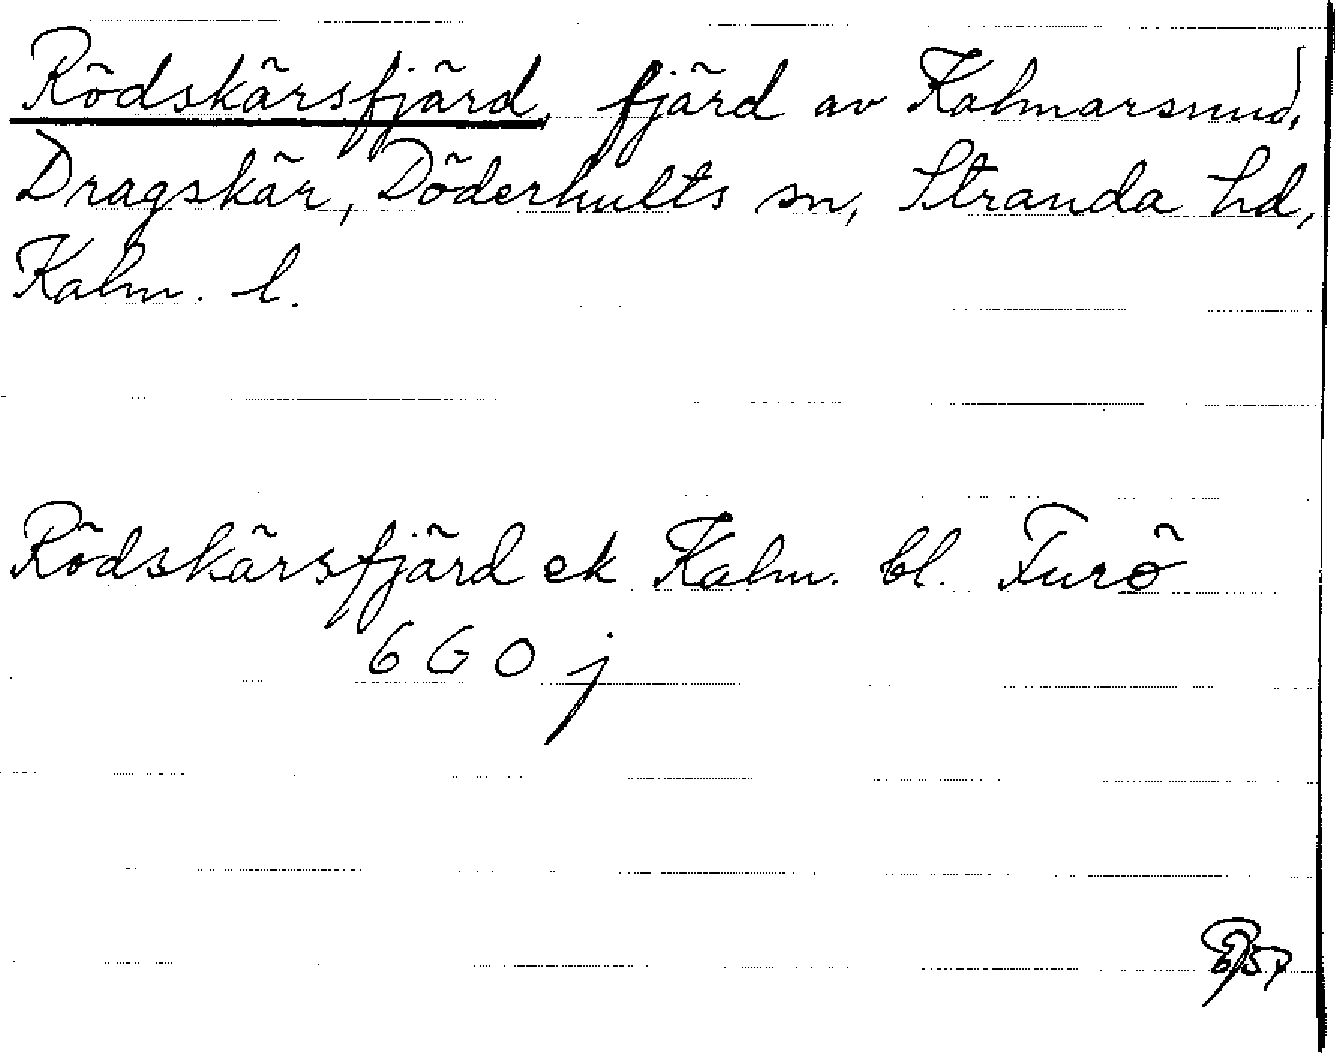 Rödskärsfjärd, fjärd av Kalmarsund,
Dragskär, Döderhults sn, Stranda hd,
Kalm. l.
Rödskärsfjärd ek Kalm. bl. Furö
6 G O j